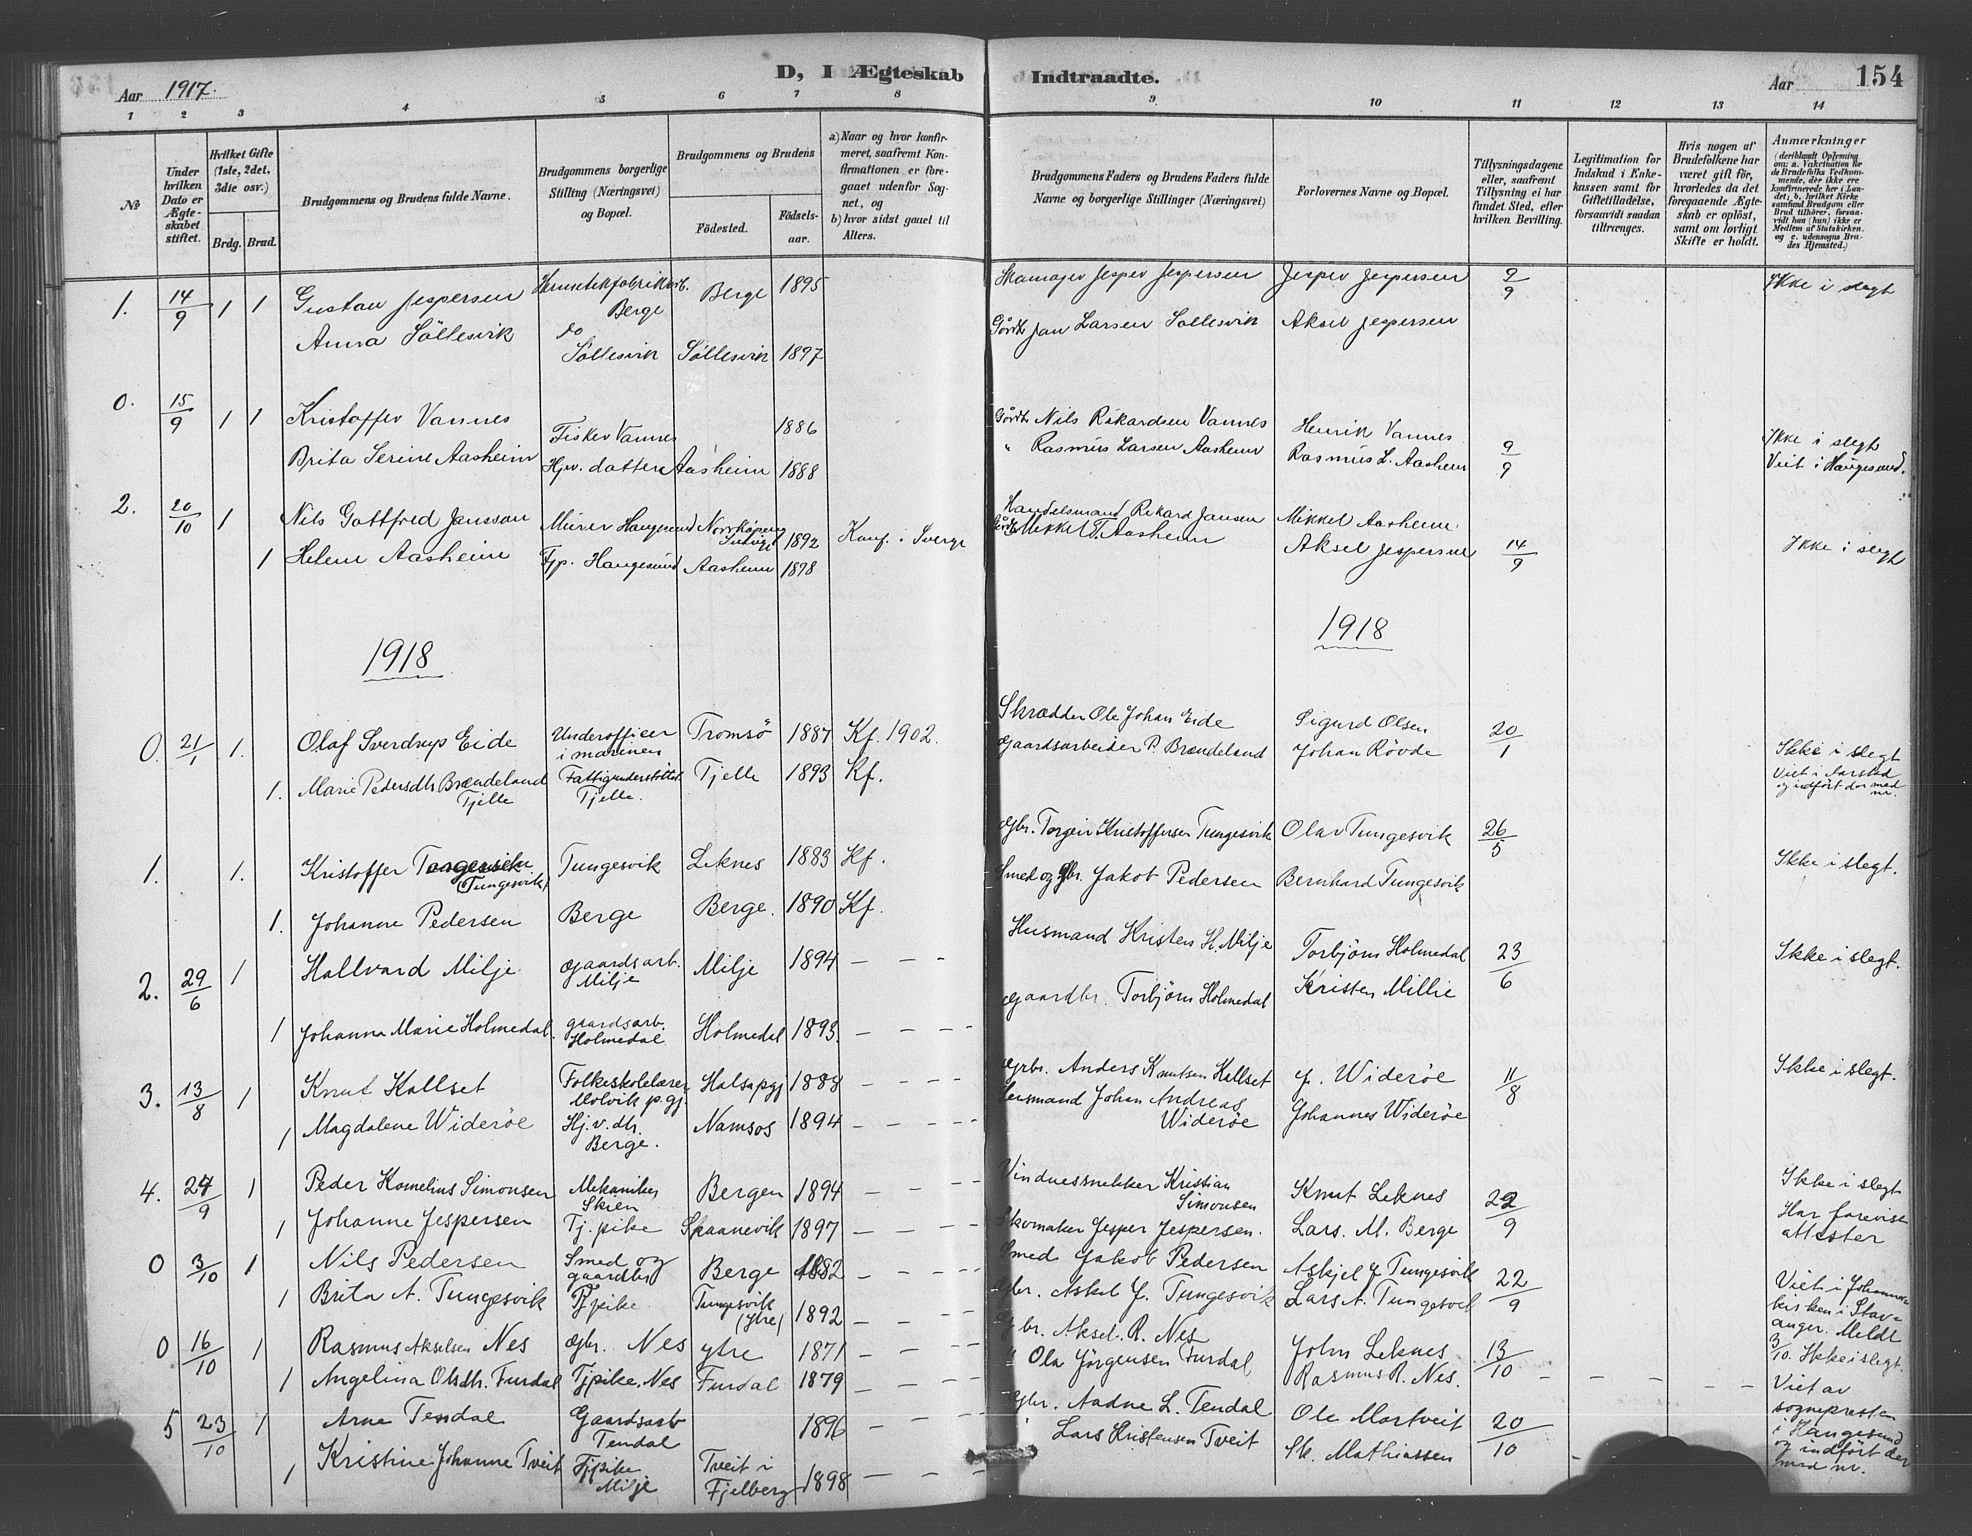 Aar 1917.
D, I Ægteskab Indtraadte.
Aar
154
1 2 3 4 5 6 7 8 9 10 11 12 13 14
No
Under hvilken Dato er Ægteskabet stiftet.
Hvilket Gifte (1ste, 2det, 3die osv.)
Brdg. Brud.
Brudgommens og Brudens fulde Navne.
Brudgommens borgerlige Stilling (Næringsvei) og Bopæl.
Brudgommens og Brudens
Fødested.
Fødselsaar.
a) Naar og hvor konfirmeret, saafremt Konfirmationen er foregaaet udenfor Sognet, og
b) hvor sidst gaaet til Alters.
Brudgommens Faders og Brudens Faders fulde Navne og borgerlige Stillinger (Næringsvei)
Forlovernes Navne og Bopæl.
Tillysningsdagene eller, saafremt Tillysning ei har fundet Sted, efter hvilken Bevilling.
Legitimation for Indskud i Enkekassen samt for Giftetilladelse, forsaavidt saadan tiltrænges.
Hvis nogen af Brudefolkene har været gift før, hvorledes da det foregaaende Ægteskab er opløst, samt om lovligt Skifte er holdt.
Anmærkninger
1. 14/9 1 1 Gustav Jespersen Hermetikfabrikarb. Berge Berge 1895 Skomager Jesper Jespersen Jesper Jespersen 9/9 Ikke i slegt
Anna Söllesvik do Söllesvik Söllesvik 1897 Gårdb. Jan Larsen Söllesvik Aksel Jespersen
0. 15/9 1 1 Kristoffer Vannes Fisker Vannes 1886 Gårdb. Nils Rikardsen Vannes Henrik Vannes Ikke i slegt
Brita Serine Aasheim Hjv. datter Aasheim 1888 " Rasmus Larsen Aasheim Rasmus L. Aasheim 9/9 Viet i Haugesund.
2. 20/10 1 Nils Gottfred Jansson Murer Haugesund Norrköping 1892 Konf. i Sverge Handelsmand Rikard Jansen Mikkel Aasheim
1 Helene Aasheim Tjp. Haugesund Aasheim 1898 Gårdb. Mikkel T. Aasheim Aksel Jespersen 14/9 Ikke i slegt
1918 1918
0. 21/1 1. Olaf Sverdrup Eide Underofficer i marinen Tromsö 1887 Kf. 1902. Skrædder Ole Johan Eide Sigurd Olsen 20/1
1. Marie Pedersdtr Brændeland Tjelle Fattigunderstöttet Tjelle. Tjelle 1893 Kf. Gaardsarbeider P. Brændeland Johan Rövde Ikke i slegt Viet i Aarstad og indfört der med nr.
1. 1. Kristoffer (Tungesvik) Tungesvik Leknes 1883 Kf. Gbr. Torgeir Kristoffersen Tungesvik Olav Tungesvik 26/5 Ikke i slegt.
1. Johanne Pedersen Berge Berge. 1890 Kf. Smed og Gbr. Jakob Pedersen Bernhard Tungesvik
2. 29/6 1 Hallvard Milje gaardsarb. Milje Milje 1894 — - - Husmand Kristen H. Milje Torbjörn Holmedal 23/6 Ikke i slegt.
1 Johanna Marie Holmedal. gaardsarb. Holmedal Holmedal 1893. — — - - Gaardbr. Torbjörn Holmedal Kristen Millie
3. 13/8 1 Knut Kallset Folkeskolelærer Ulvik p.gj. Halsa pgj 1888 — — - - Gbr. Anders Knutsen Kallset J. Wideröe 11/8 Ikke i slegt.
1 Magdalene Wideröe Hj. v. dtr. Berge. Namsos 1894 — — - - Lensmand Johan Andreas Wideröe Johannes Wideröe
4. 24/9 1 Peder Kornelius Simonsen Mekaniker Skien Bergen 1894 — — - - Vindussnekker Kristian Simonsen Knut Leknes 22/9 Ikke i slegt
1 Johanne Jespersen Tj. pike Skaanevik 1897 — — - - Skomaker Jesper Jespersen. Lars. M. Berge Har forevist attester
0 3/10 1 Nils Pedersen Smed og gaardbr Berge 1882 — — - - Smed Jakob Pedersen Askjel J Tungesvik 22/9
1 Brita A. Tungesvik Tjpike. Tungesvik (ytre) 1892 — — - Gbr. Askel J. Tungesvik Lars A. Tungesvik Viet i Johanneskirken i Stavanger. Meldt 3/10. Ikke i slegt.
0 16/10 1 Rasmus Akselsen Nes Gbr. Nes ytre 1871 — — - - Gbr. Aksel. R. Nes John Leknes 13/10
1 Angelina Olsdtr. Furdal Tjpike. Nes Furdal 1879 — — - - " Ola Jörgensen Furdal Rasmus R. Nes. — — — —
5 23/10 1 Arne Tendal Gaardsarb Tendal 1896 — — - - Gbr. Aadne L. Tendal Ole Mortveit 20/10
1 Kristine Johanne Tveit Tjpike Milje Tveit i Fjelberg 1898 — — - - " Lars Kristensen Tveit Sk. Mathiassen Viet av sognepresten i Haugesund og indfört der med nr.